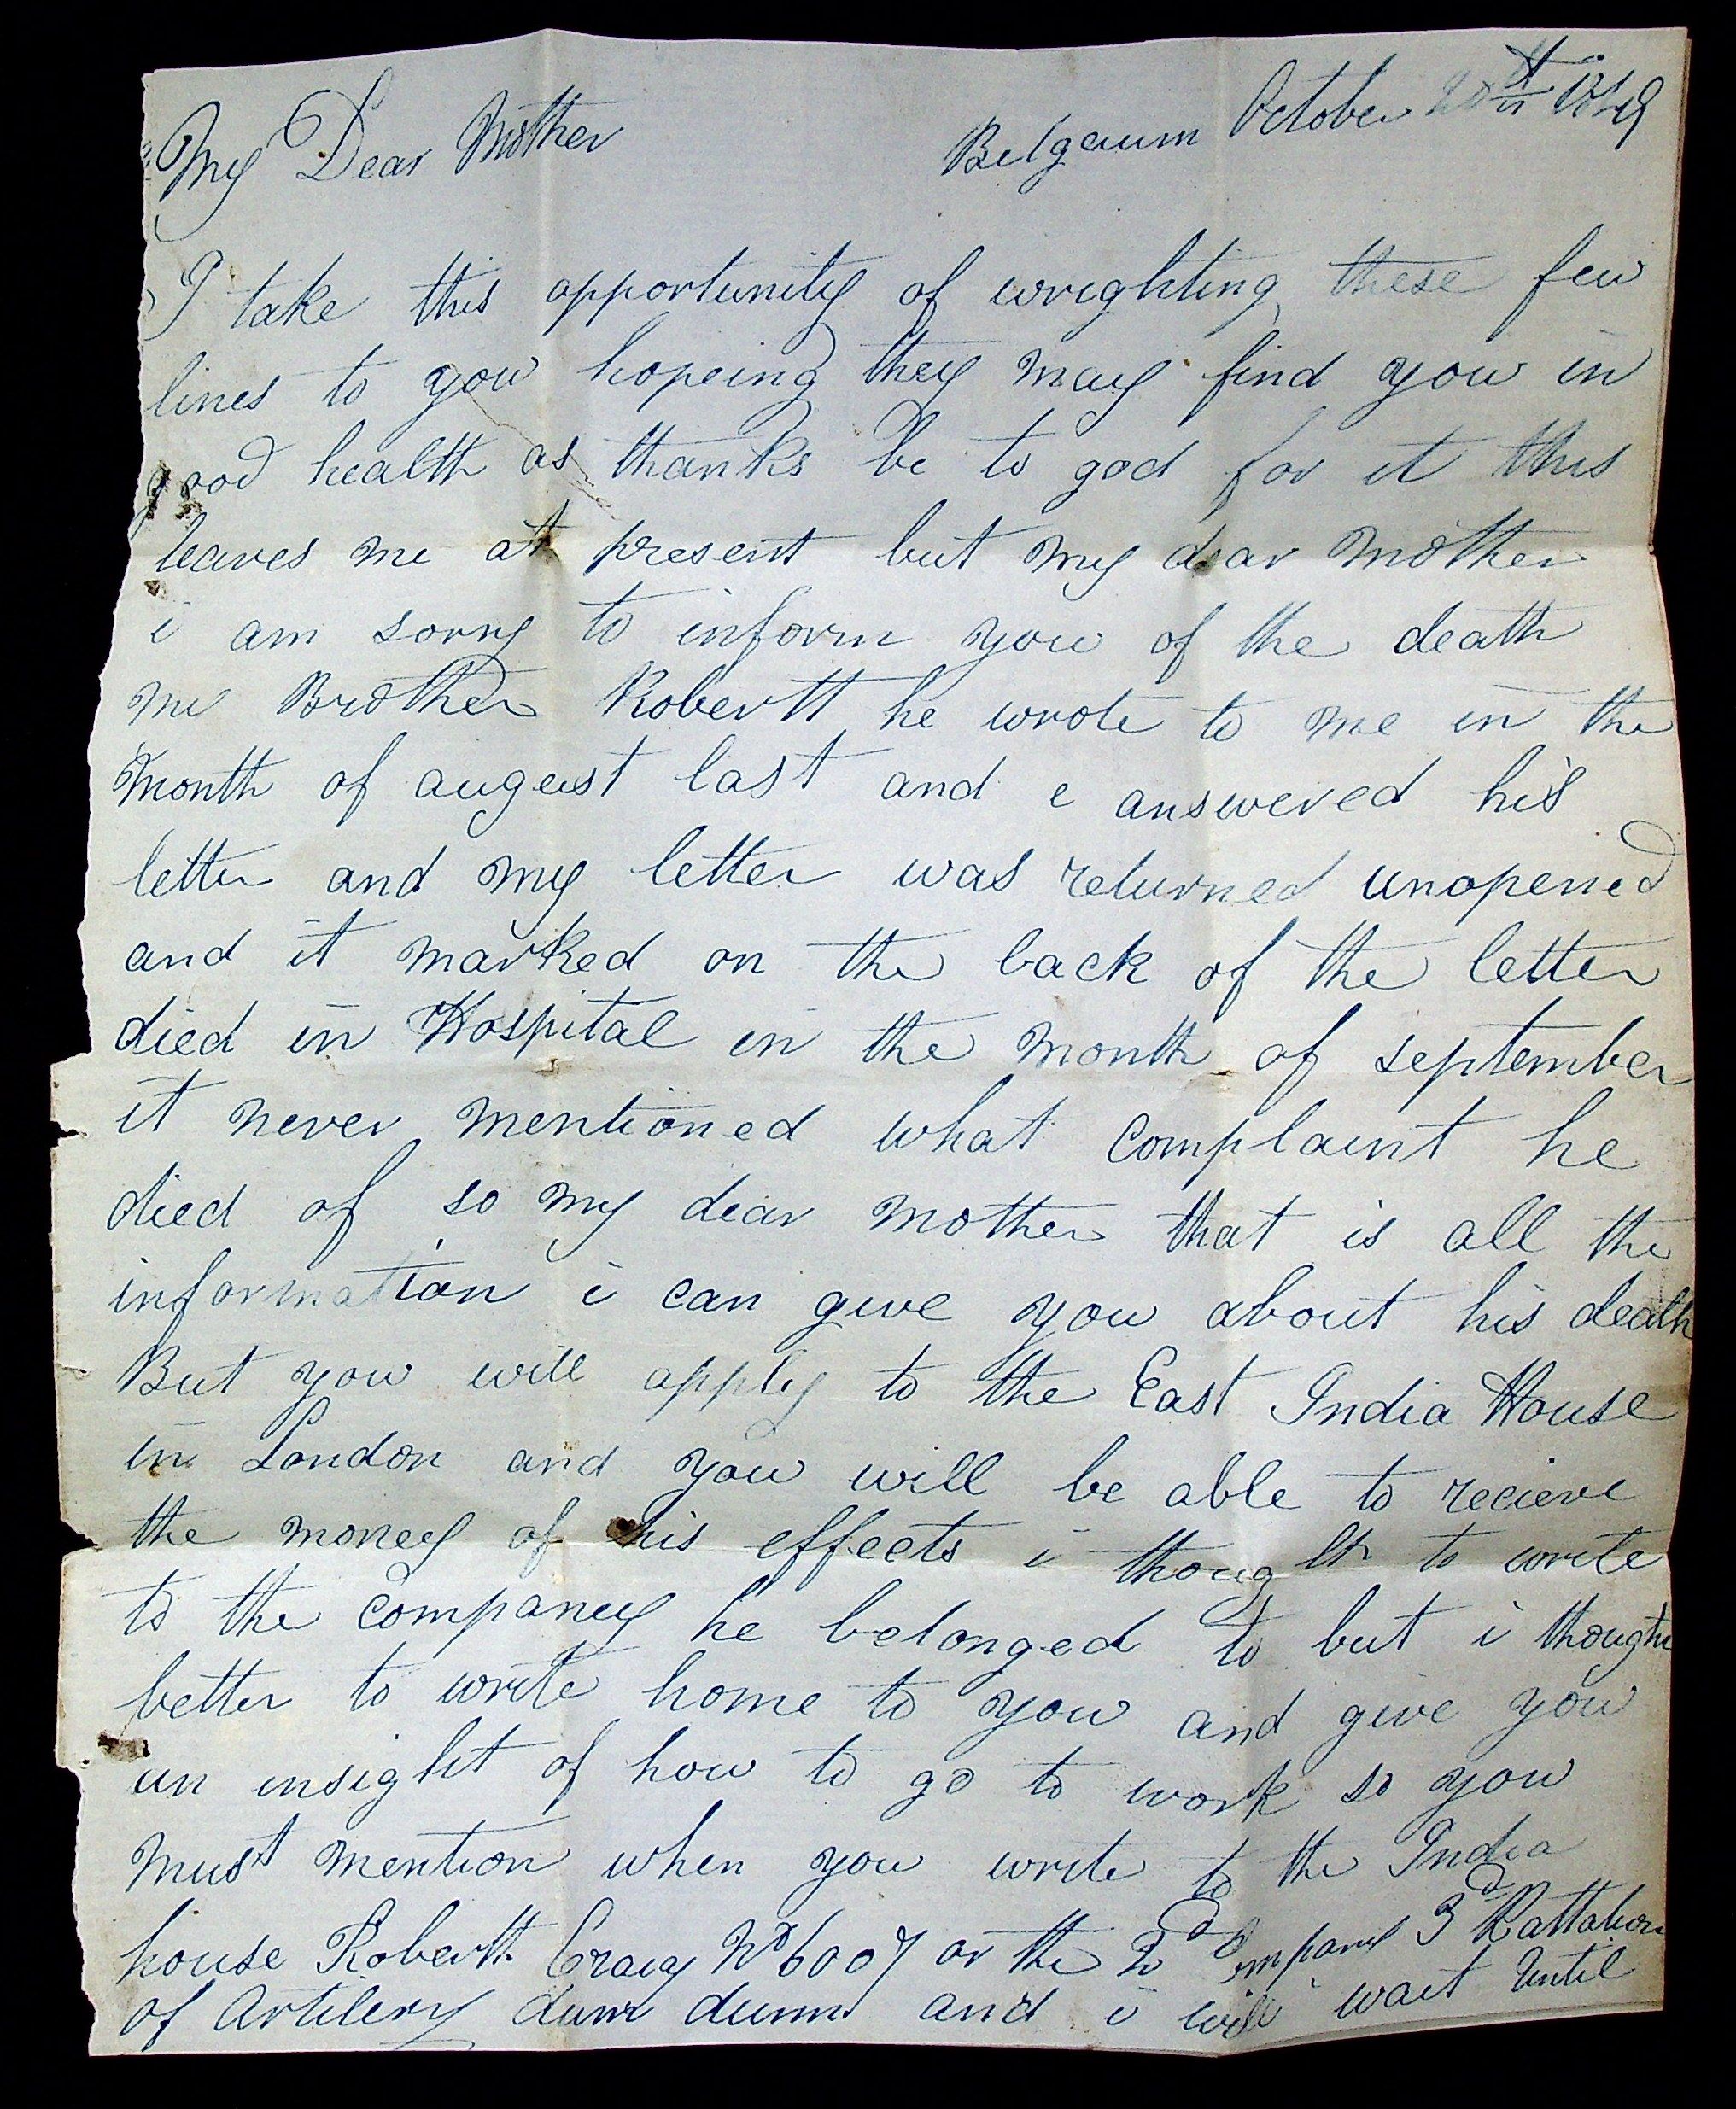 My Dear Mother
Belgaum October 20th
I take this opportunity of wrighting these few
lines to you hopeing they may find you in
good health as thanks be to god for it this
leaves me at present but my dear mother
i am sorry to inform you of the death
me Brother Robertt he wrote to me in the
month of august last and i answered his
letter and my letter was returned unopened
and it marked on the back of the letter
died in Hospital in the month of september
it never mentioned what complaint he
died of so my dear mother that is all the
information i can give you about his death
But you will apply to the East India House
in London and you will be able to recieve
the money of his effects i thought to write
to the company he belonged to but i thought
better to write home to you and give you
an insight of how to go to work so you
must mention when you write to the India
house Robertt Craig No 6007 or the 2d Company 3d Battalion
of Artilery dum dumm and i will wait until